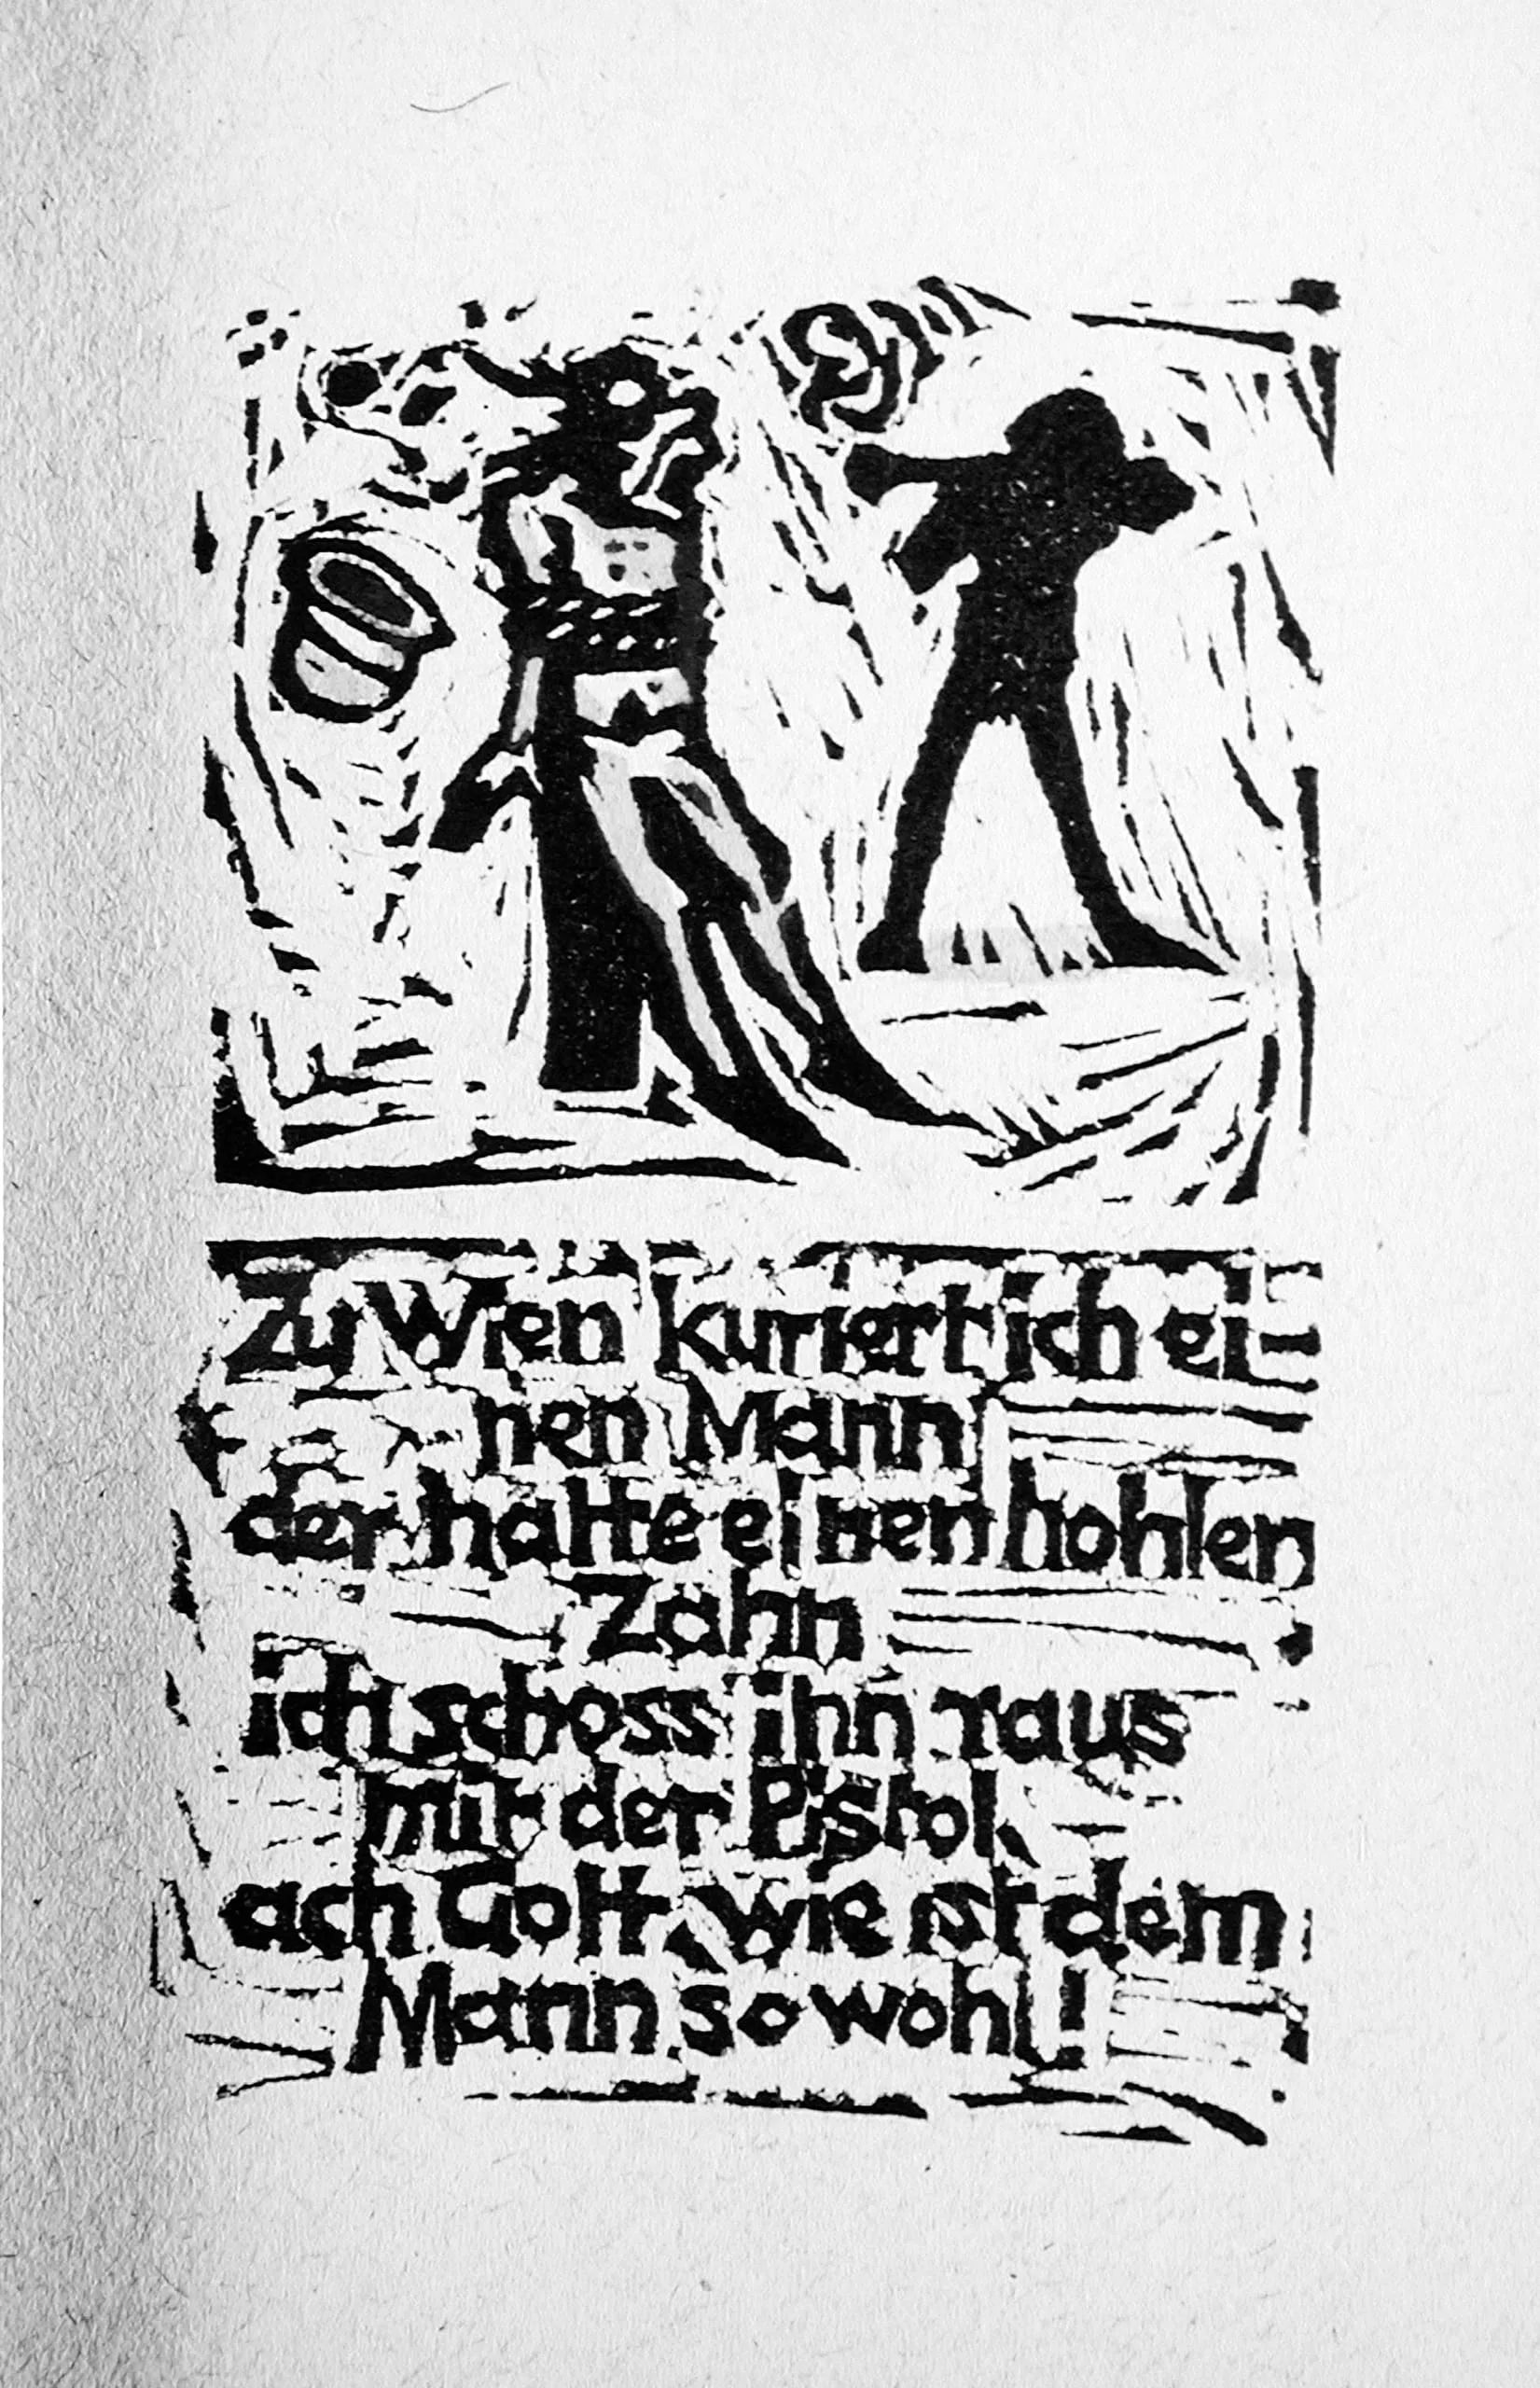 Zu Wien kuriert ich ei-
nen Mann
der hatte einen hohlen
Zahn
ich schoss ihn raus
mit der Pistol
ach Gott, wie ist dem
Mann so wohl!